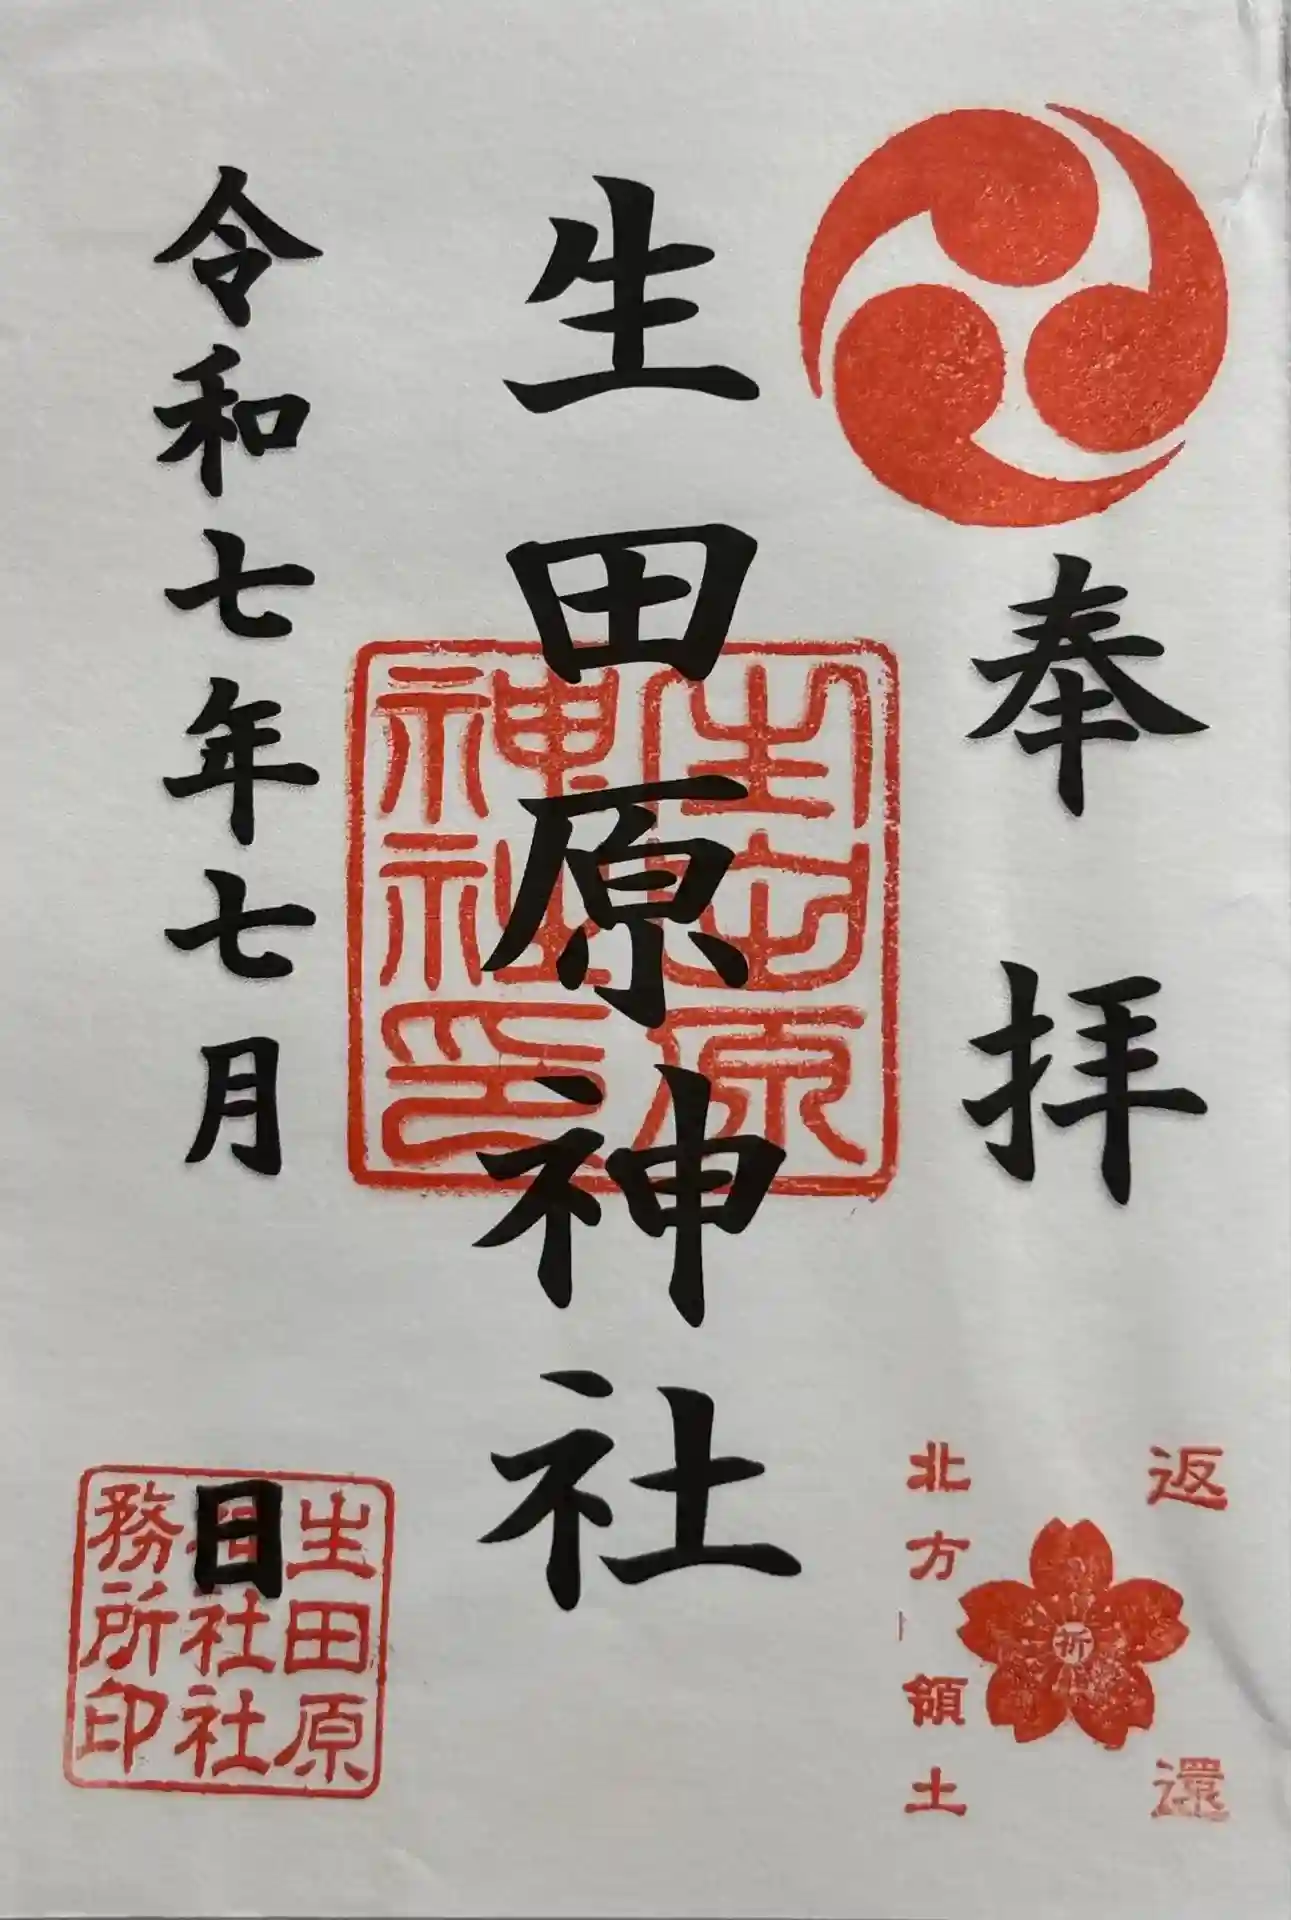 奉拝
生田原神社
令和七年七月 日
生田原
神社印
返還
祈
北方領土
生田原
神社社
務所印